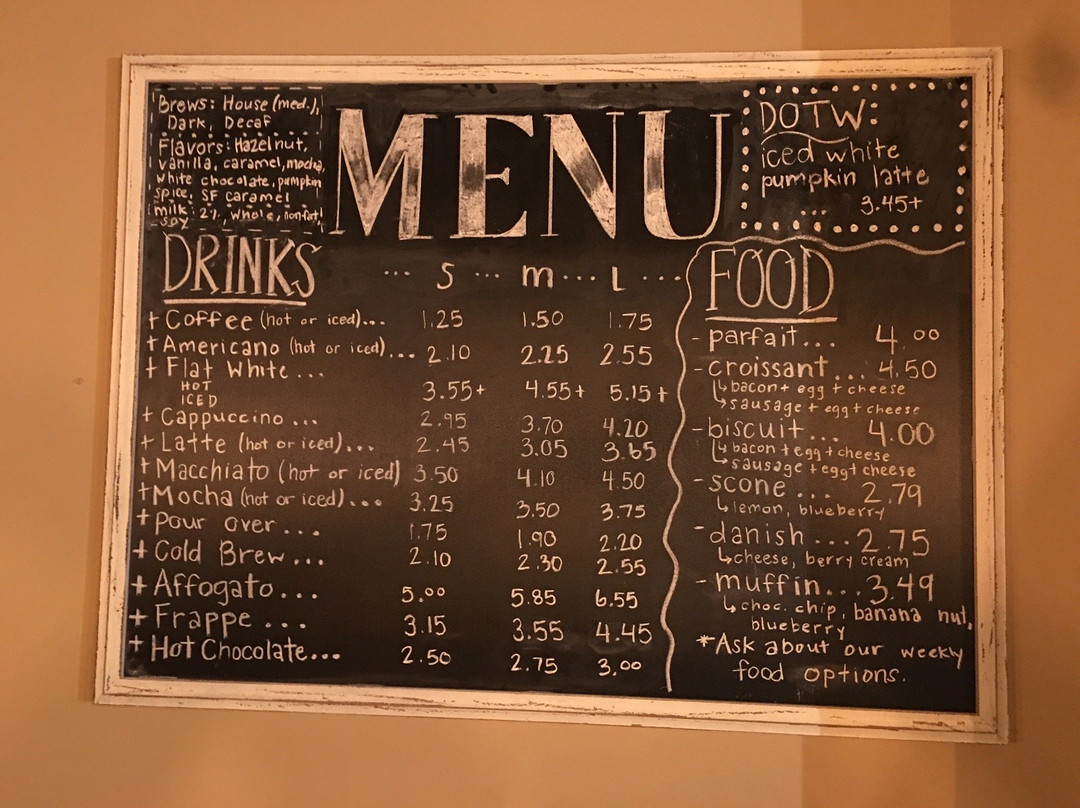 Brews: House (med.),
Dark, Decaf
Flavors: Hazelnut,
vanilla, caramel, mocha,
white chocolate, pumpkin
spice, SF caramel
milk: 2%, whole, nonfat,
soy
MENU
DOTW:
iced white
pumpkin latte
... 3.45+
DRINKS ... S ... m ... L ...
+ Coffee (hot or iced)... 1.25 1.50 1.75
+ Americano (hot or iced)... 2.10 2.25 2.55
+ Flat White ...
HOT
ICED 3.55+ 4.55+ 5.15+
+ Cappuccino ... 2.95 3.70 4.20
+ Latte (hot or iced)... 2.45 3.05 3.65
+ Macchiato (hot or iced) 3.50 4.10 4.50
+ Mocha (hot or iced)... 3.25 3.50 3.75
+ Pour over ... 1.75 1.90 2.20
+ Cold Brew... 2.10 2.30 2.55
+ Affogato... 5.00 5.85 6.55
+ Frappe ... 3.15 3.55 4.45
+ Hot Chocolate... 2.50 2.75 3.00
FOOD
- parfait... 4.00
- croissant... 4.50
↳ bacon + egg + cheese
↳ sausage + egg + cheese
- biscuit... 4.00
↳ bacon + egg + cheese
↳ sausage + egg + cheese
- scone ... 2.79
↳ lemon, blueberry
- danish ... 2.75
↳ cheese, berry cream
- muffin... 3.49
↳ choc. chip, banana nut,
blueberry
*Ask about our weekly
food options.